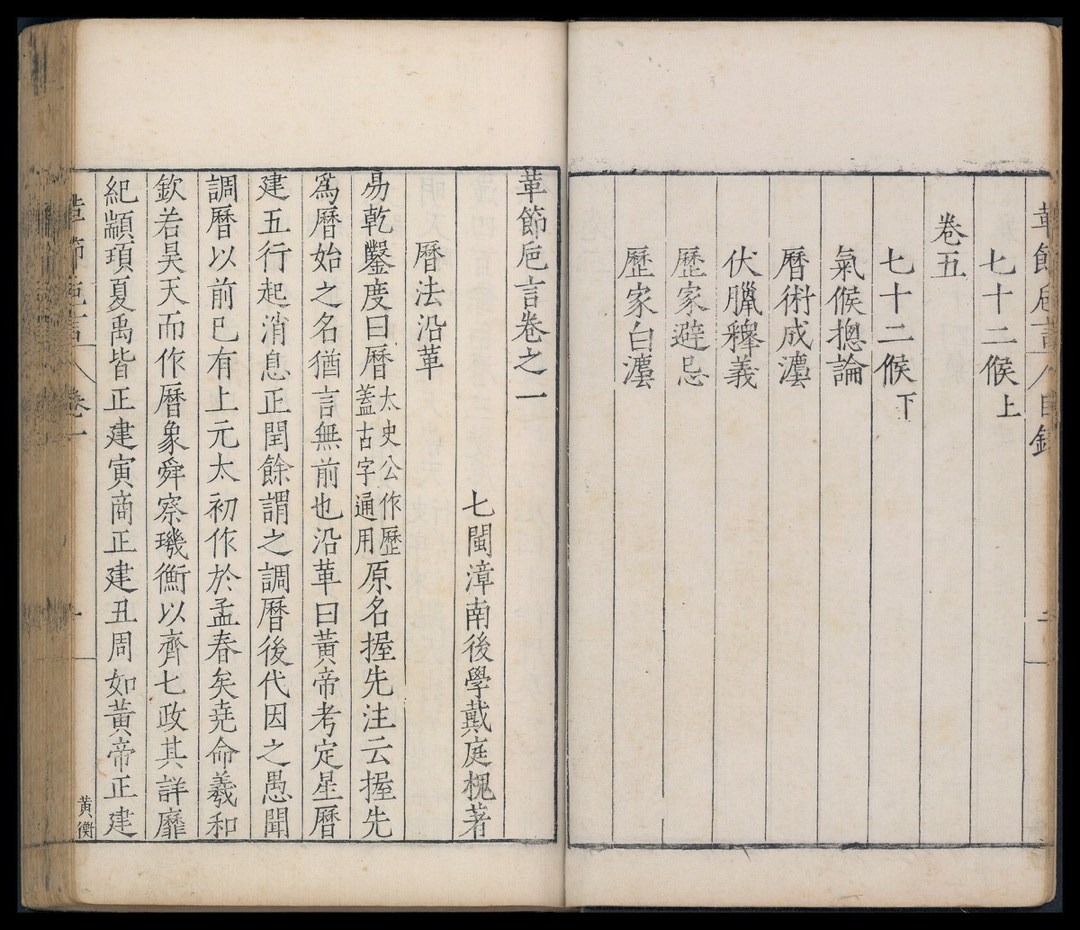 革節卮言 目錄
七十二候上
卷五
七十二候下
氣候摠論
曆術成灋
伏臘釋義
歷家避忌
歷家白灋
革節卮言卷之一
七閩漳南後學戴庭槐著
曆法沿革
易乾鑿度曰曆太史公作歷蓋古字通用原名握先注云握先
爲曆始之名猶言無前也沿革曰黃帝考定星曆
建五行起消息正閏餘謂之調曆後代因之愚聞
調曆以前已有上元太初作於孟春矣堯命羲和
欽若昊天而作曆象舜察璣衡以齊七政其詳靡
紀顓頊夏禹皆正建寅商正建丑周如黃帝正建
革節卮言 卷一
一
黃衡